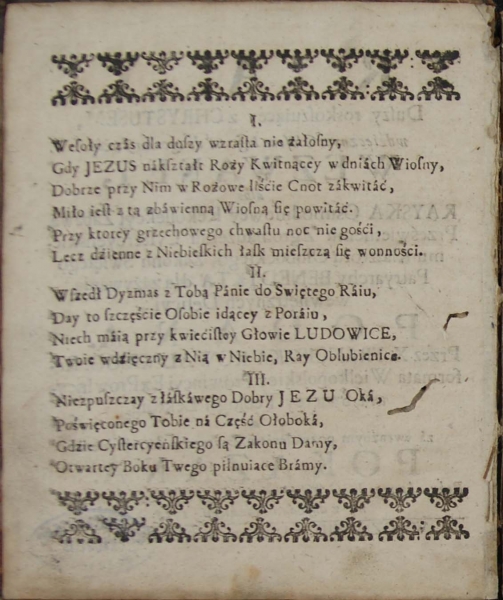 I.
Wesoły czás dla duszy wzrasta nie żałosny,
Gdy JEZUS nákształt Roży Kwitnącey w dniách Wiosny,
Dobrze przy Nim w Rożowe liście Cnot zákwitáć,
Miło iest z tą zbáwienną Wiosną się powitáć.
Przy ktorey grzechowego chwastu noc nie gości,
Lecz dzienne z Niebieskich łask mieszczą się wonności.
II.
Wszedł Dyzmas z Tobą Pánie do Swiętego Ráiu,
Day to szczęście Osobie idącey z Poráiu,
Niech máią przy kwiecistey Głowie LUDOWICE,
Twoie wdzięczny z Nią w Niebie, Ray Oblubienice.
III.
Niezpuszczay z łáskáwego Dobry JEZU Oká,
Poświęconego Tobie ná Część Ołoboká,
Gdzie Cystercyeńskiego są Zakonu Damy,
Otwartey Boku Twego pilnuiace Brámy.